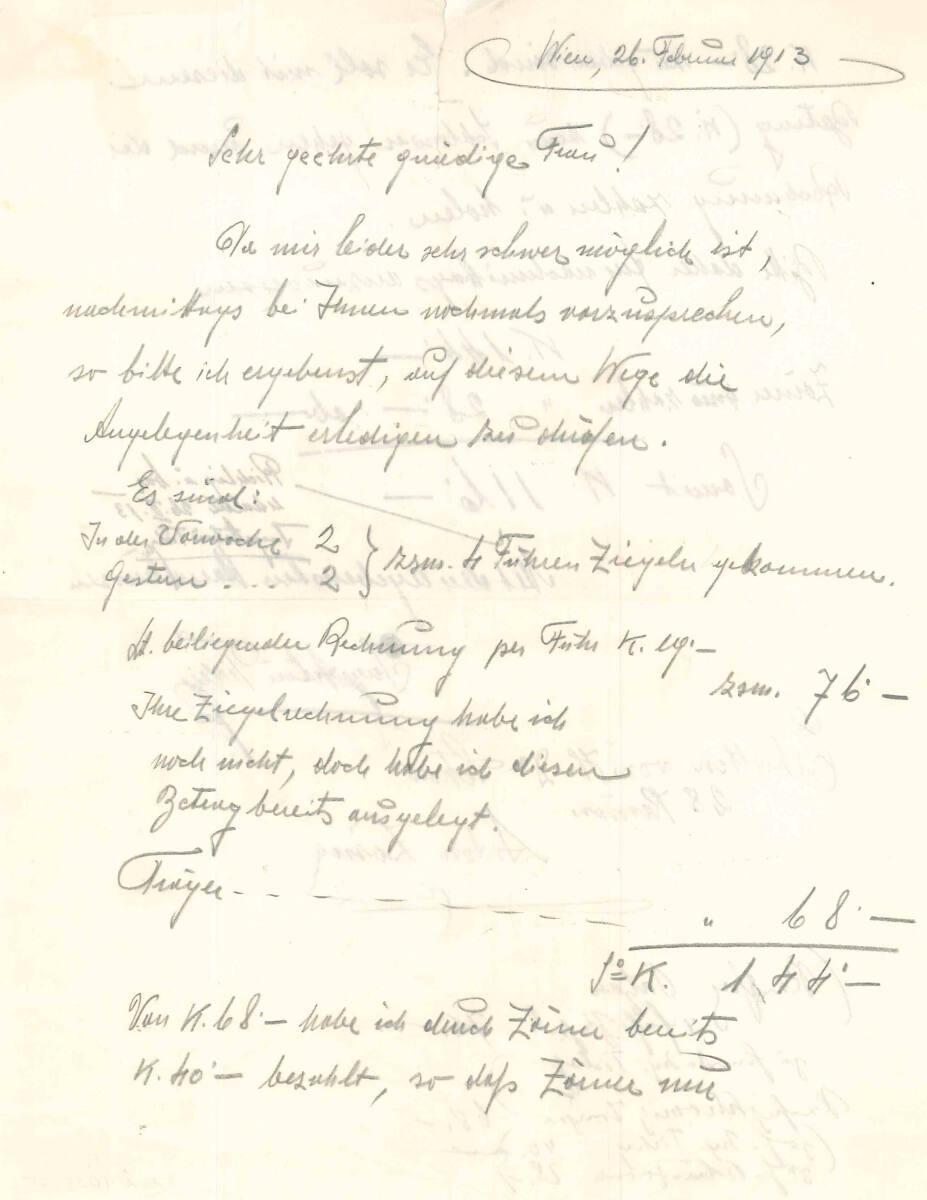 Wien, 26. Februar 1913
Sehr geehrte gnädige Frau!
Da mir leider sehr schwer möglich ist,
nachmittags bei Ihnen nochmals vorzusprechen,
so bitte ich ergebenst, auf diesem Wege die
Angelegenheit erledigen zu dürfen.
Es sind:
In der Vorwoche 2
Gestern . . . . 2 } zsm. 4 Fuhren Ziegeln gekommen.
Lt. beiliegender Rechnung per Fuhr K. 19.—
zsm. 76.—
Ihre Ziegelrechnung habe ich
noch nicht, doch habe ich diesen
Betrag bereits ausgelegt.
Träger - - - - - - - - " 68.—
Sa K. 144.—
Von K. 68.— habe ich durch Zörner bereits
K. 40.— bezahlt, so daß Zörner nur